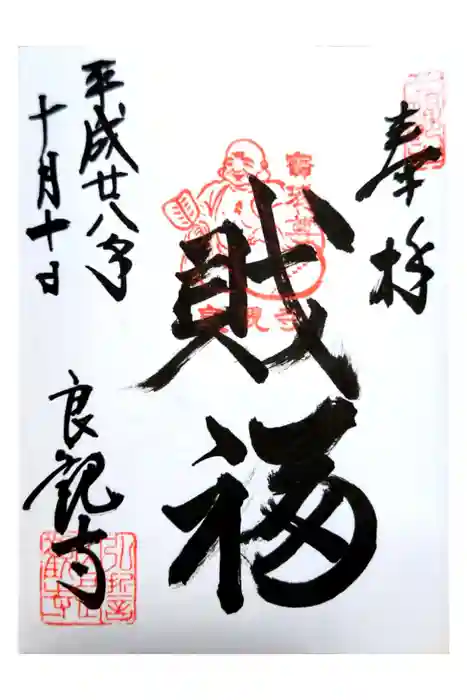 奉拝
財福
良観寺
平成廿八年
十月十日
良観寺